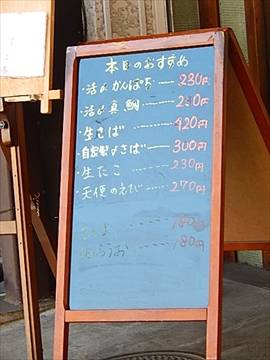 本日のおすすめ
・活〆かんぱち 230円
・活〆真鯛 230円
・生さば 420円
・自家製〆さば 300円
・生たこ 230円
・天使のえび 270円
180円
180円